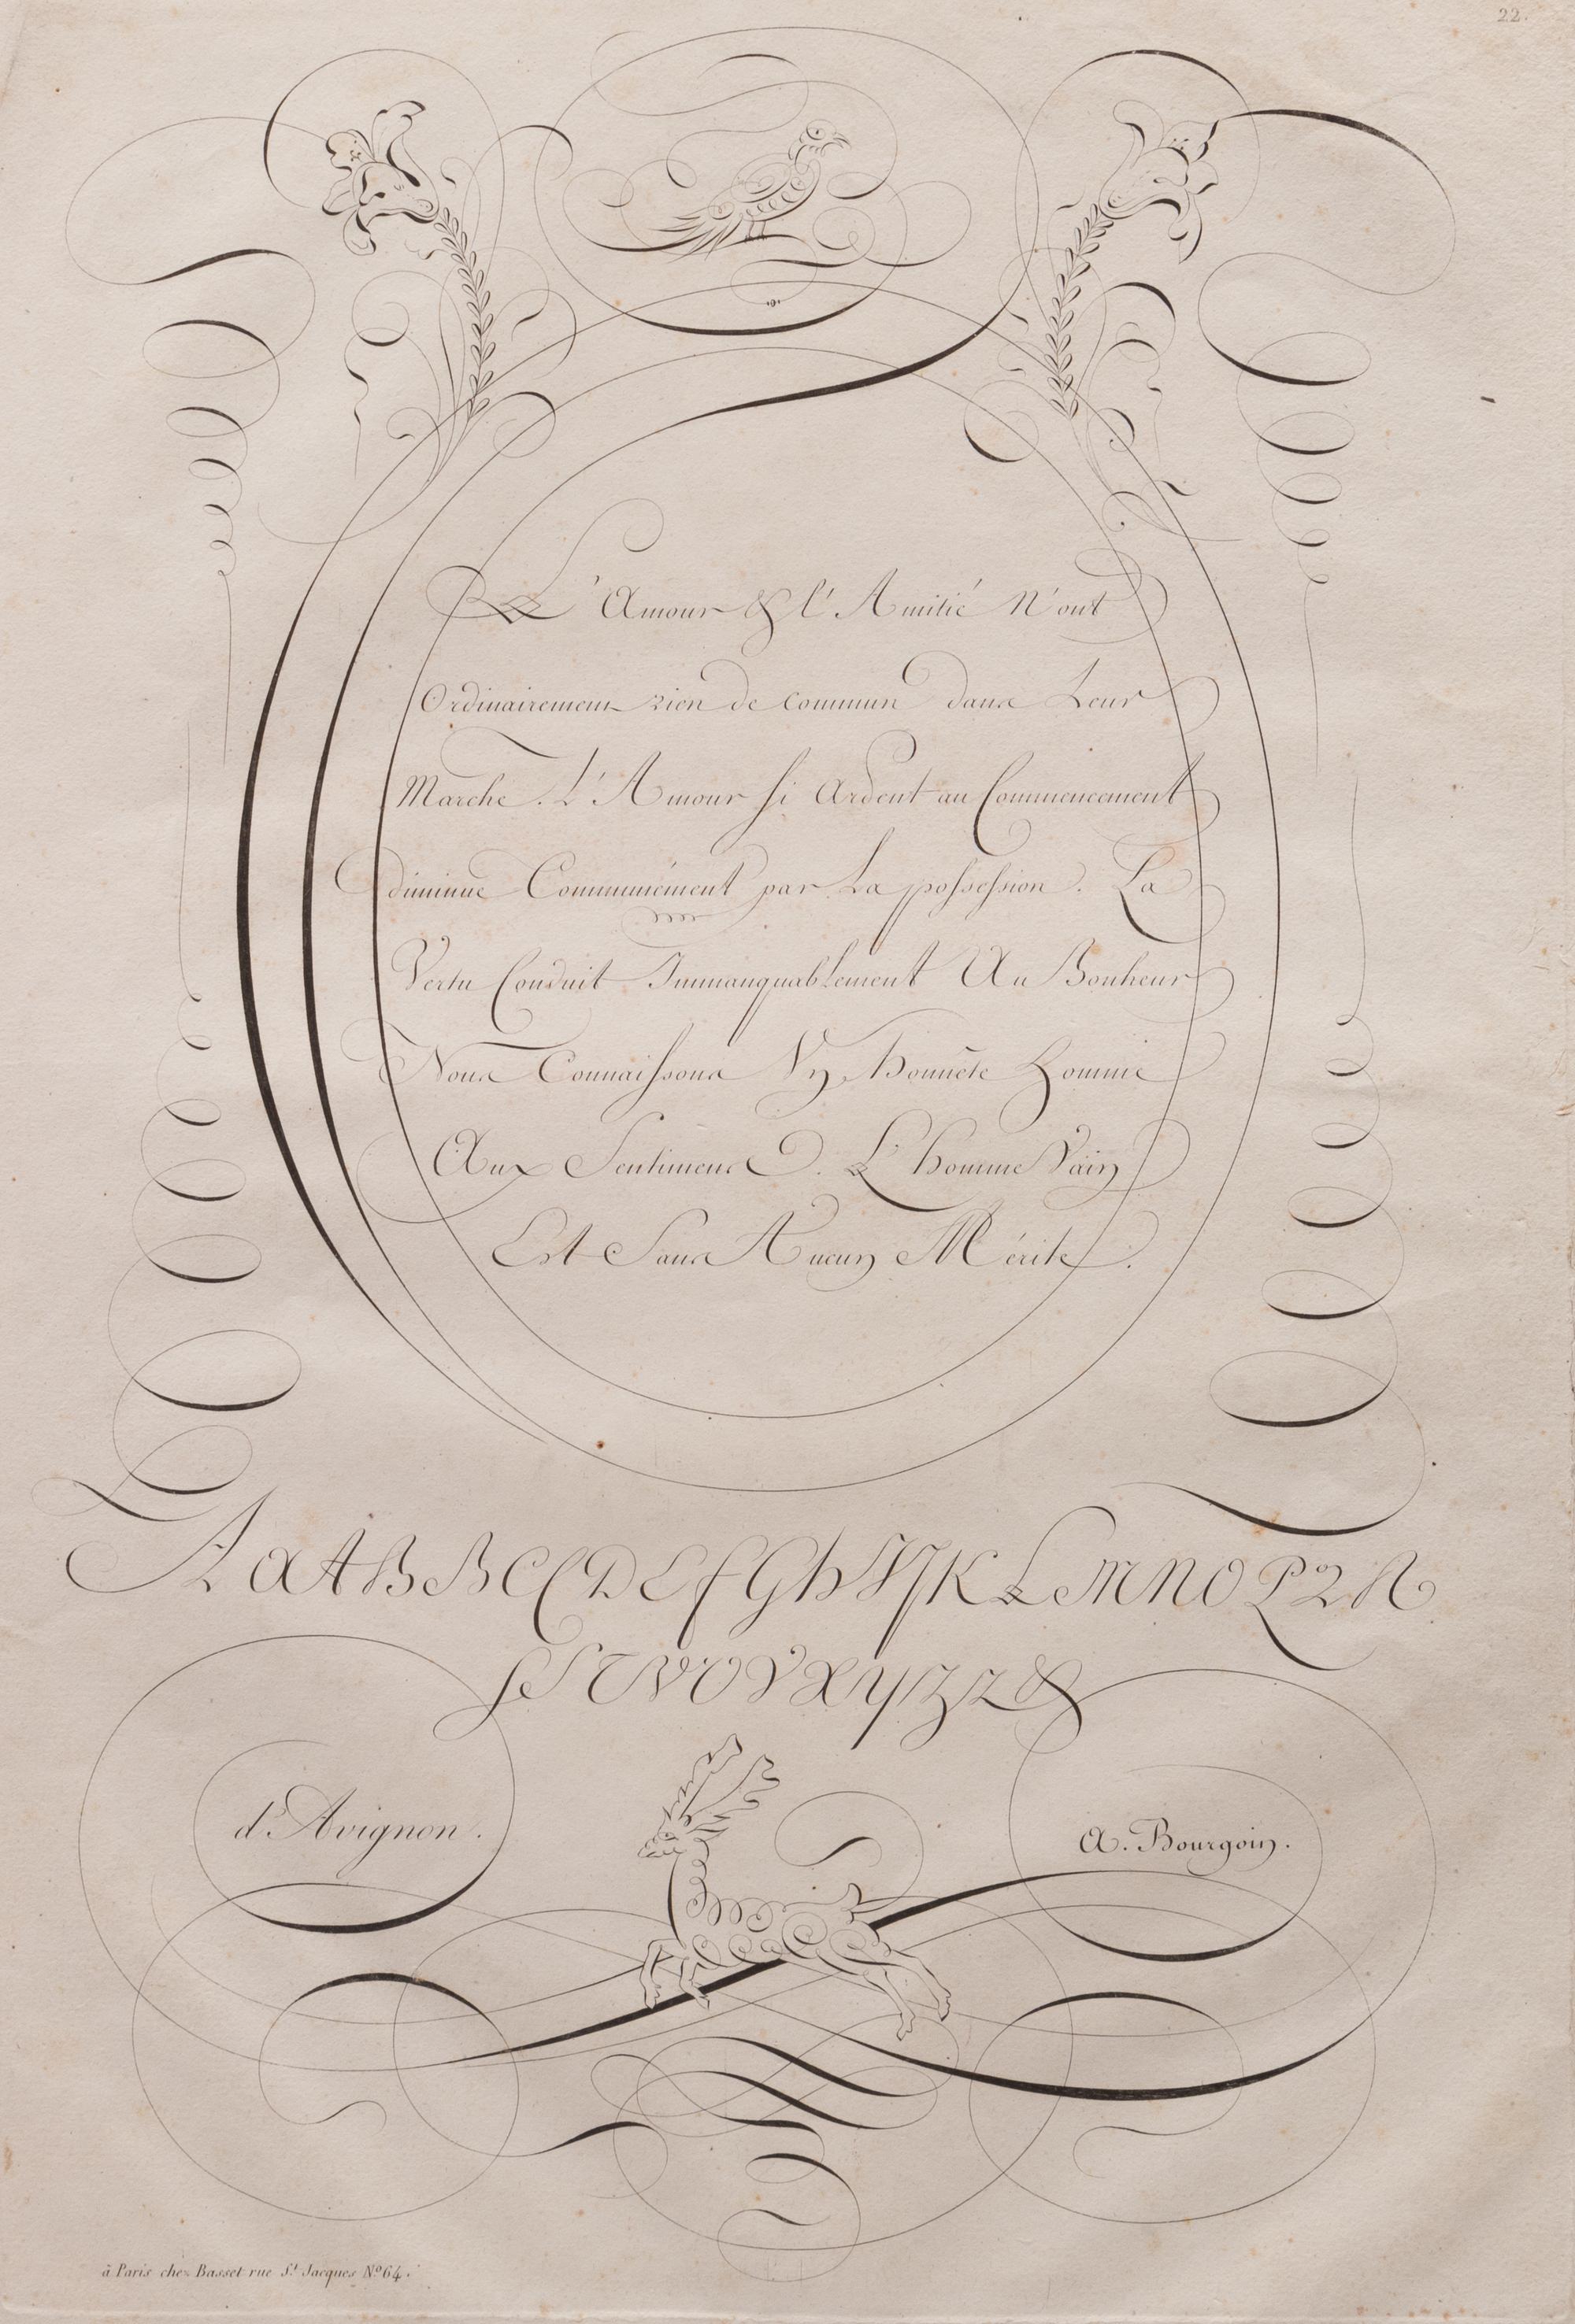 22.
L'Amour & l'Amitié N'ont
Ordinairement rien de commun dans Leur
Marche. L'Amour si Ardent au Commencement
diminue Communément par La possession. La
Vertu Conduit Immanquablement Au Bonheur
Nous Connaissons Un honnête homme
Aux Sentimens. L'homme Vain
Est Sans Aucun Mérite.
A a A B B C C D E f G h I J K L M N O P Q R
S S T V V V X Y Z Z &
d'Avignon.
A. Bourgoin.
à Paris chez Basset rue St. Jacques No. 64.